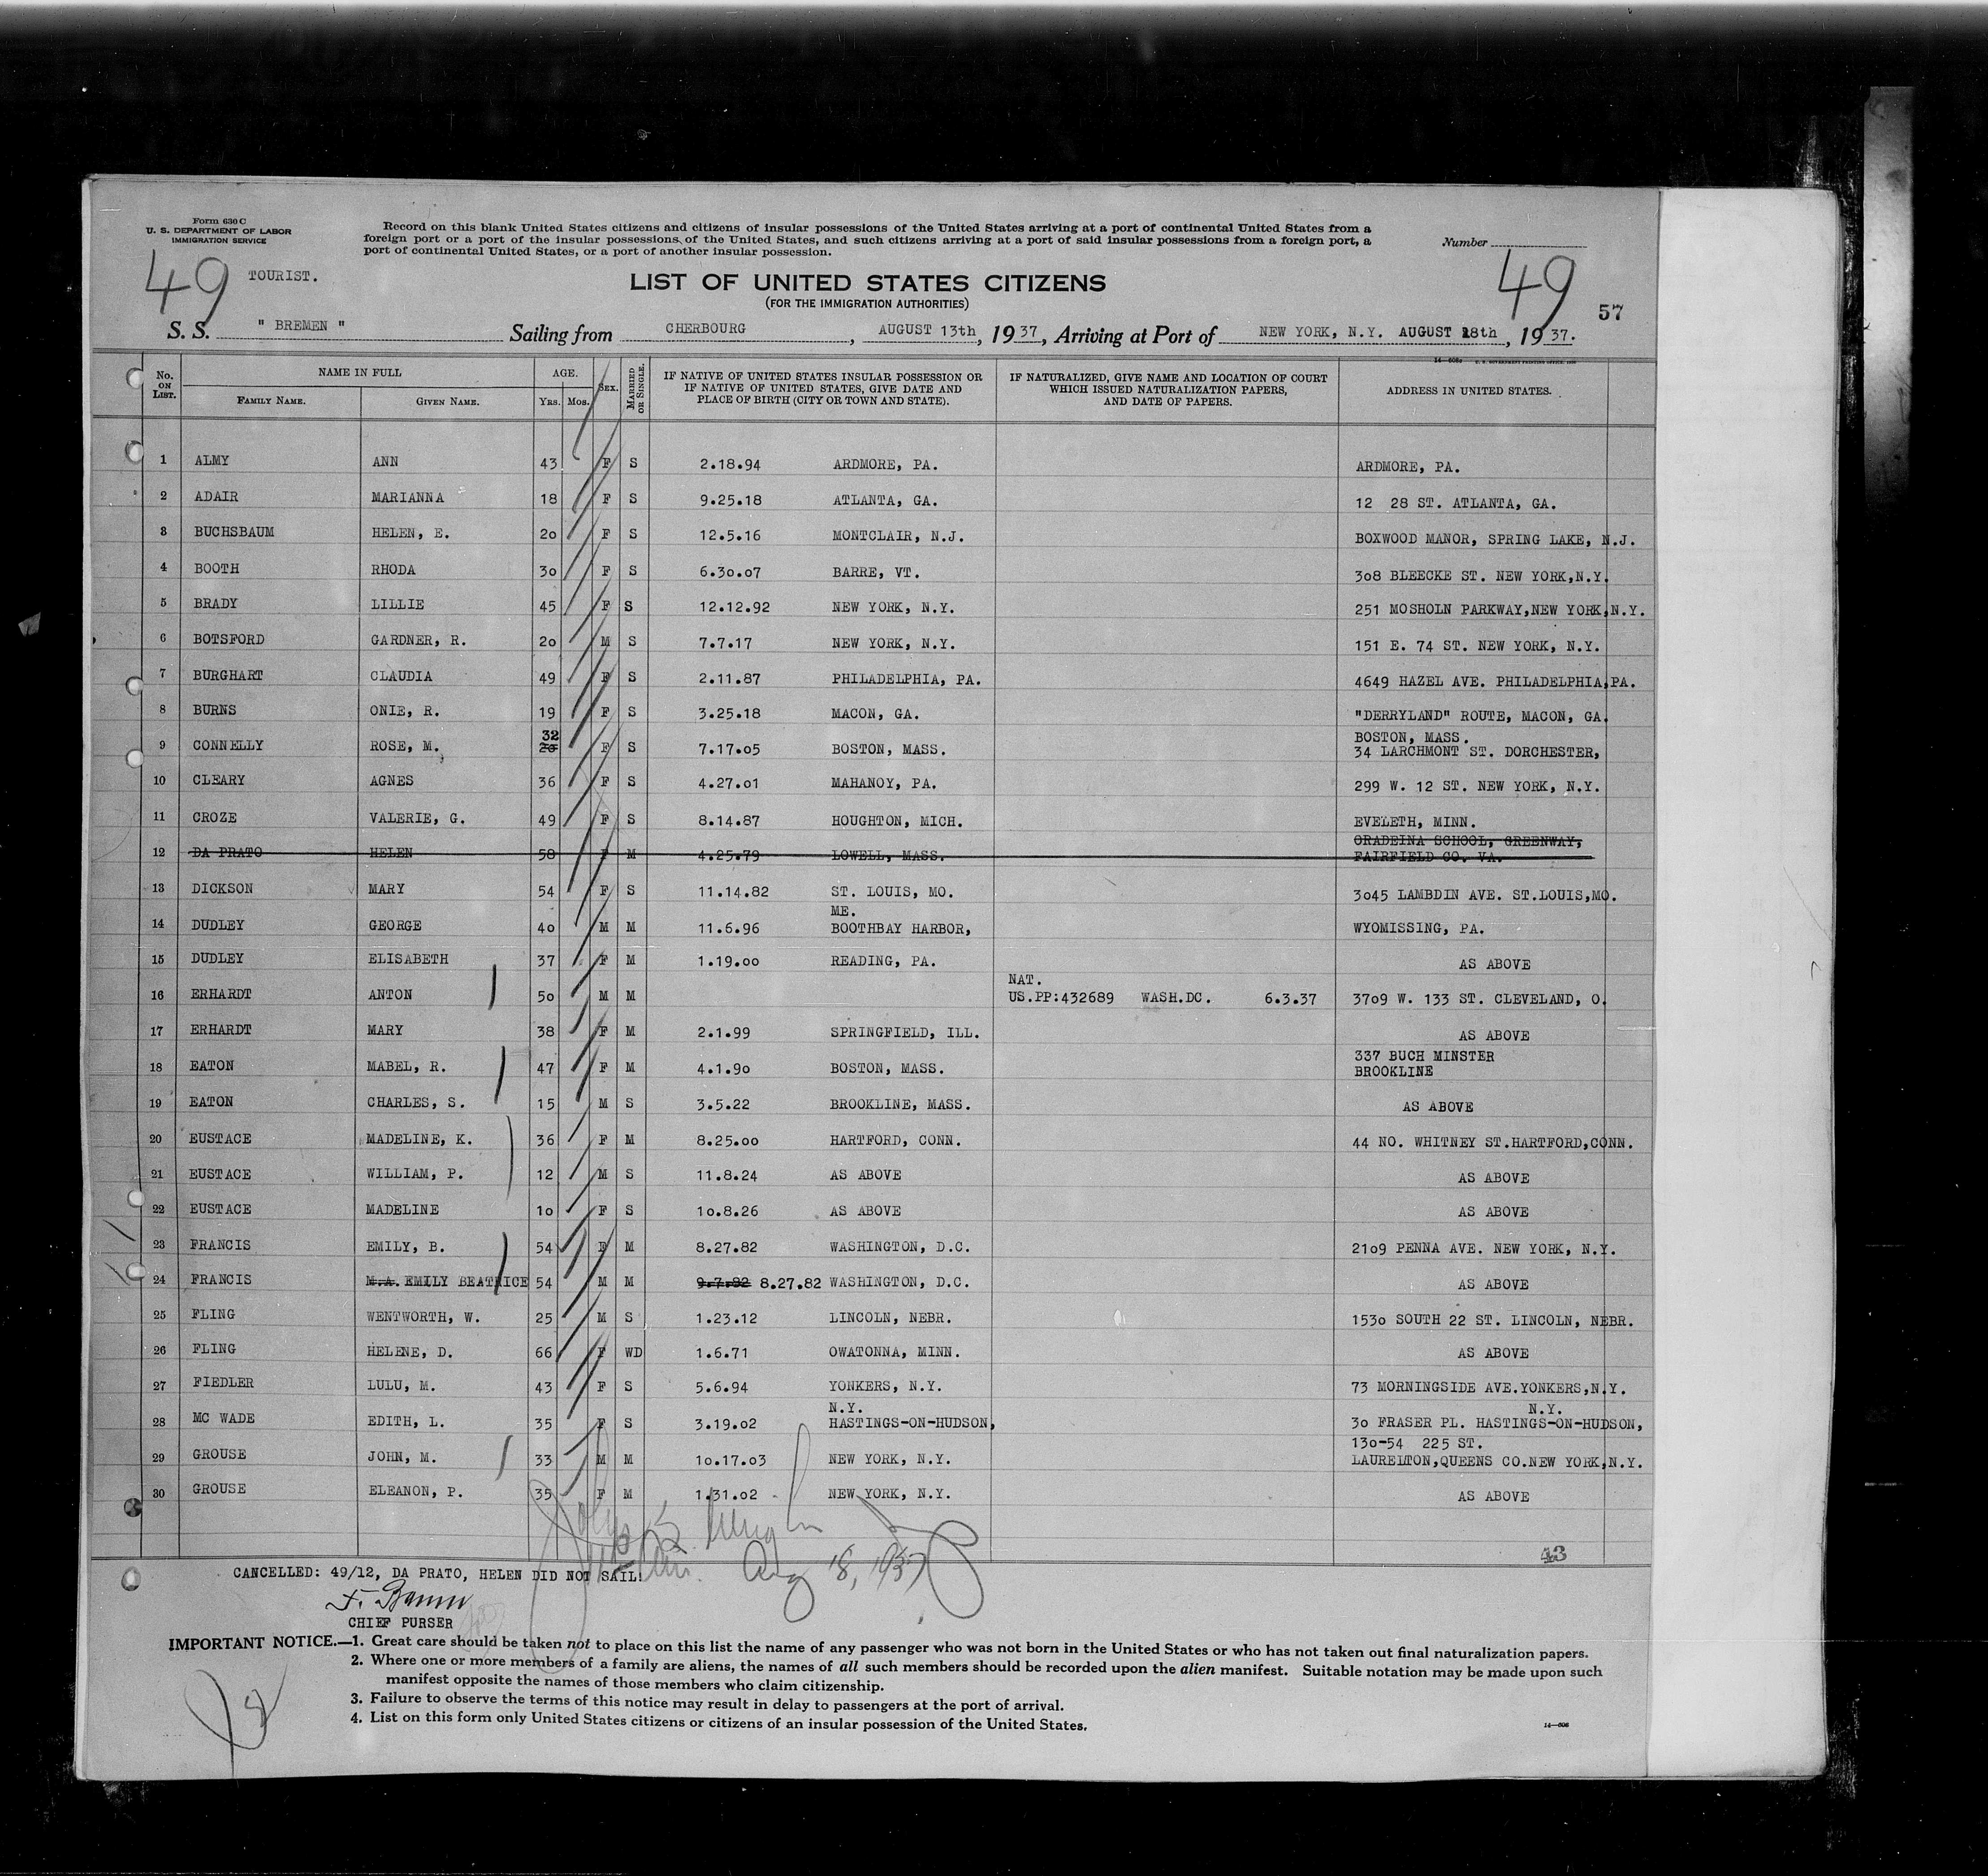 Form 630 C
U. S. DEPARTMENT OF LABOR
IMMIGRATION SERVICE
Record on this blank United States citizens and citizens of insular possessions of the United States arriving at a port of continental United States from a
foreign port or a port of the insular possessions of the United States, and such citizens arriving at a port of said insular possessions from a foreign port, a
port of continental United States, or a port of another insular possession.
Number
49 TOURIST. 49
LIST OF UNITED STATES CITIZENS
(FOR THE IMMIGRATION AUTHORITIES)
57
S. S. " BREMEN " Sailing from CHERBOURG , AUGUST 13th, 1937, Arriving at Port of NEW YORK, N.Y. AUGUST 18th, 1937.
No. ON LIST. NAME IN FULL FAMILY NAME. GIVEN NAME. AGE. YRS. MOS. SEX. MARRIED OR SINGLE. IF NATIVE OF UNITED STATES INSULAR POSSESSION OR IF NATIVE OF UNITED STATES, GIVE DATE AND PLACE OF BIRTH (CITY OR TOWN AND STATE). IF NATURALIZED, GIVE NAME AND LOCATION OF COURT WHICH ISSUED NATURALIZATION PAPERS, AND DATE OF PAPERS. ADDRESS IN UNITED STATES.
1 ALMY ANN 43 F S 2.18.94 ARDMORE, PA. ARDMORE, PA.
2 ADAIR MARIANNA 18 F S 9.25.18 ATLANTA, GA. 12 28 ST. ATLANTA, GA.
3 BUCHSBAUM HELEN, E. 20 F S 12.5.16 MONTCLAIR, N.J. BOXWOOD MANOR, SPRING LAKE, N.J.
4 BOOTH RHODA 30 F S 6.30.07 BARRE, VT. 308 BLEECKE ST. NEW YORK,N.Y.
5 BRADY LILLIE 45 F S 12.12.92 NEW YORK, N.Y. 251 MOSHOLN PARKWAY,NEW YORK,N.Y.
6 BOTSFORD GARDNER, R. 20 M S 7.7.17 NEW YORK, N.Y. 151 E. 74 ST. NEW YORK, N.Y.
7 BURGHART CLAUDIA 49 F S 2.11.87 PHILADELPHIA, PA. 4649 HAZEL AVE. PHILADELPHIA,PA.
8 BURNS ONIE, R. 19 F S 3.25.18 MACON, GA. "DERRYLAND" ROUTE, MACON, GA.
32 BOSTON, MASS.
9 CONNELLY ROSE, M. F S 7.17.05 BOSTON, MASS. 34 LARCHMONT ST. DORCHESTER,
10 CLEARY AGNES 36 F S 4.27.01 MAHANOY, PA. 299 W. 12 ST. NEW YORK, N.Y.
11 CROZE VALERIE, G. 49 F S 8.14.87 HOUGHTON, MICH. EVELETH, MINN.
GRADEINA SCHOOL, GREENWAY,
12 DA PRATO HELEN 58 F M 4.25.79 LOWELL, MASS. FAIRFIELD CO. VA.
13 DICKSON MARY 54 F S 11.14.82 ST. LOUIS, MO. 3045 LAMBDIN AVE. ST.LOUIS,MO.
ME.
14 DUDLEY GEORGE 40 M M 11.6.96 BOOTHBAY HARBOR, WYOMISSING, PA.
15 DUDLEY ELISABETH 37 F M 1.19.00 READING, PA. AS ABOVE
NAT.
16 ERHARDT ANTON 50 M M US.PP:432689 WASH.DC. 6.3.37 3709 W. 133 ST. CLEVELAND, O.
17 ERHARDT MARY 38 F M 2.1.99 SPRINGFIELD, ILL. AS ABOVE
337 BUCH MINSTER
18 EATON MABEL, R. 47 F M 4.1.90 BOSTON, MASS. BROOKLINE
19 EATON CHARLES, S. 15 M S 3.5.22 BROOKLINE, MASS. AS ABOVE
20 EUSTACE MADELINE, K. 36 F M 8.25.00 HARTFORD, CONN. 44 NO. WHITNEY ST.HARTFORD,CONN.
21 EUSTACE WILLIAM, P. 12 M S 11.8.24 AS ABOVE AS ABOVE
22 EUSTACE MADELINE 10 F S 10.8.26 AS ABOVE AS ABOVE
23 FRANCIS EMILY, B. 54 F M 8.27.82 WASHINGTON, D.C. 2109 PENNA AVE. NEW YORK, N.Y.
24 FRANCIS M.A. EMILY BEATRICE 54 M M 9.7.82 8.27.82 WASHINGTON, D.C. AS ABOVE
25 FLING WENTWORTH, W. 25 M S 1.23.12 LINCOLN, NEBR. 1530 SOUTH 22 ST. LINCOLN, NEBR.
26 FLING HELENE, D. 66 F WD 1.6.71 OWATONNA, MINN. AS ABOVE
27 FIEDLER LULU, M. 43 F S 5.6.94 YONKERS, N.Y. 73 MORNINGSIDE AVE.YONKERS,N.Y.
N.Y. N.Y.
28 MC WADE EDITH, L. 35 F S 3.19.02 HASTINGS-ON-HUDSON, 30 FRASER PL. HASTINGS-ON-HUDSON,
130-54 225 ST.
29 GROUSE JOHN, M. 33 M M 10.17.03 NEW YORK, N.Y. LAURELTON,QUEENS CO.NEW YORK,N.Y.
30 GROUSE ELEANON, P. 35 F M 1.31.02 NEW YORK, N.Y. AS ABOVE
Aug 18, 1937
43
CANCELLED: 49/12, DA PRATO, HELEN DID NOT SAIL!
CHIEF PURSER
IMPORTANT NOTICE.—1. Great care should be taken not to place on this list the name of any passenger who was not born in the United States or who has not taken out final naturalization papers.
2. Where one or more members of a family are aliens, the names of all such members should be recorded upon the alien manifest. Suitable notation may be made upon such
manifest opposite the names of those members who claim citizenship.
3. Failure to observe the terms of this notice may result in delay to passengers at the port of arrival.
4. List on this form only United States citizens or citizens of an insular possession of the United States.
14—606